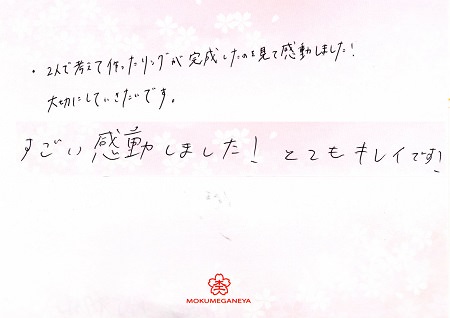 ・2人で考えて作ったリングが完成したのを見て感動しました!
大切にしていきたいです。
すごい感動しました! とてもキレイです!
MOKUMEGANEYA